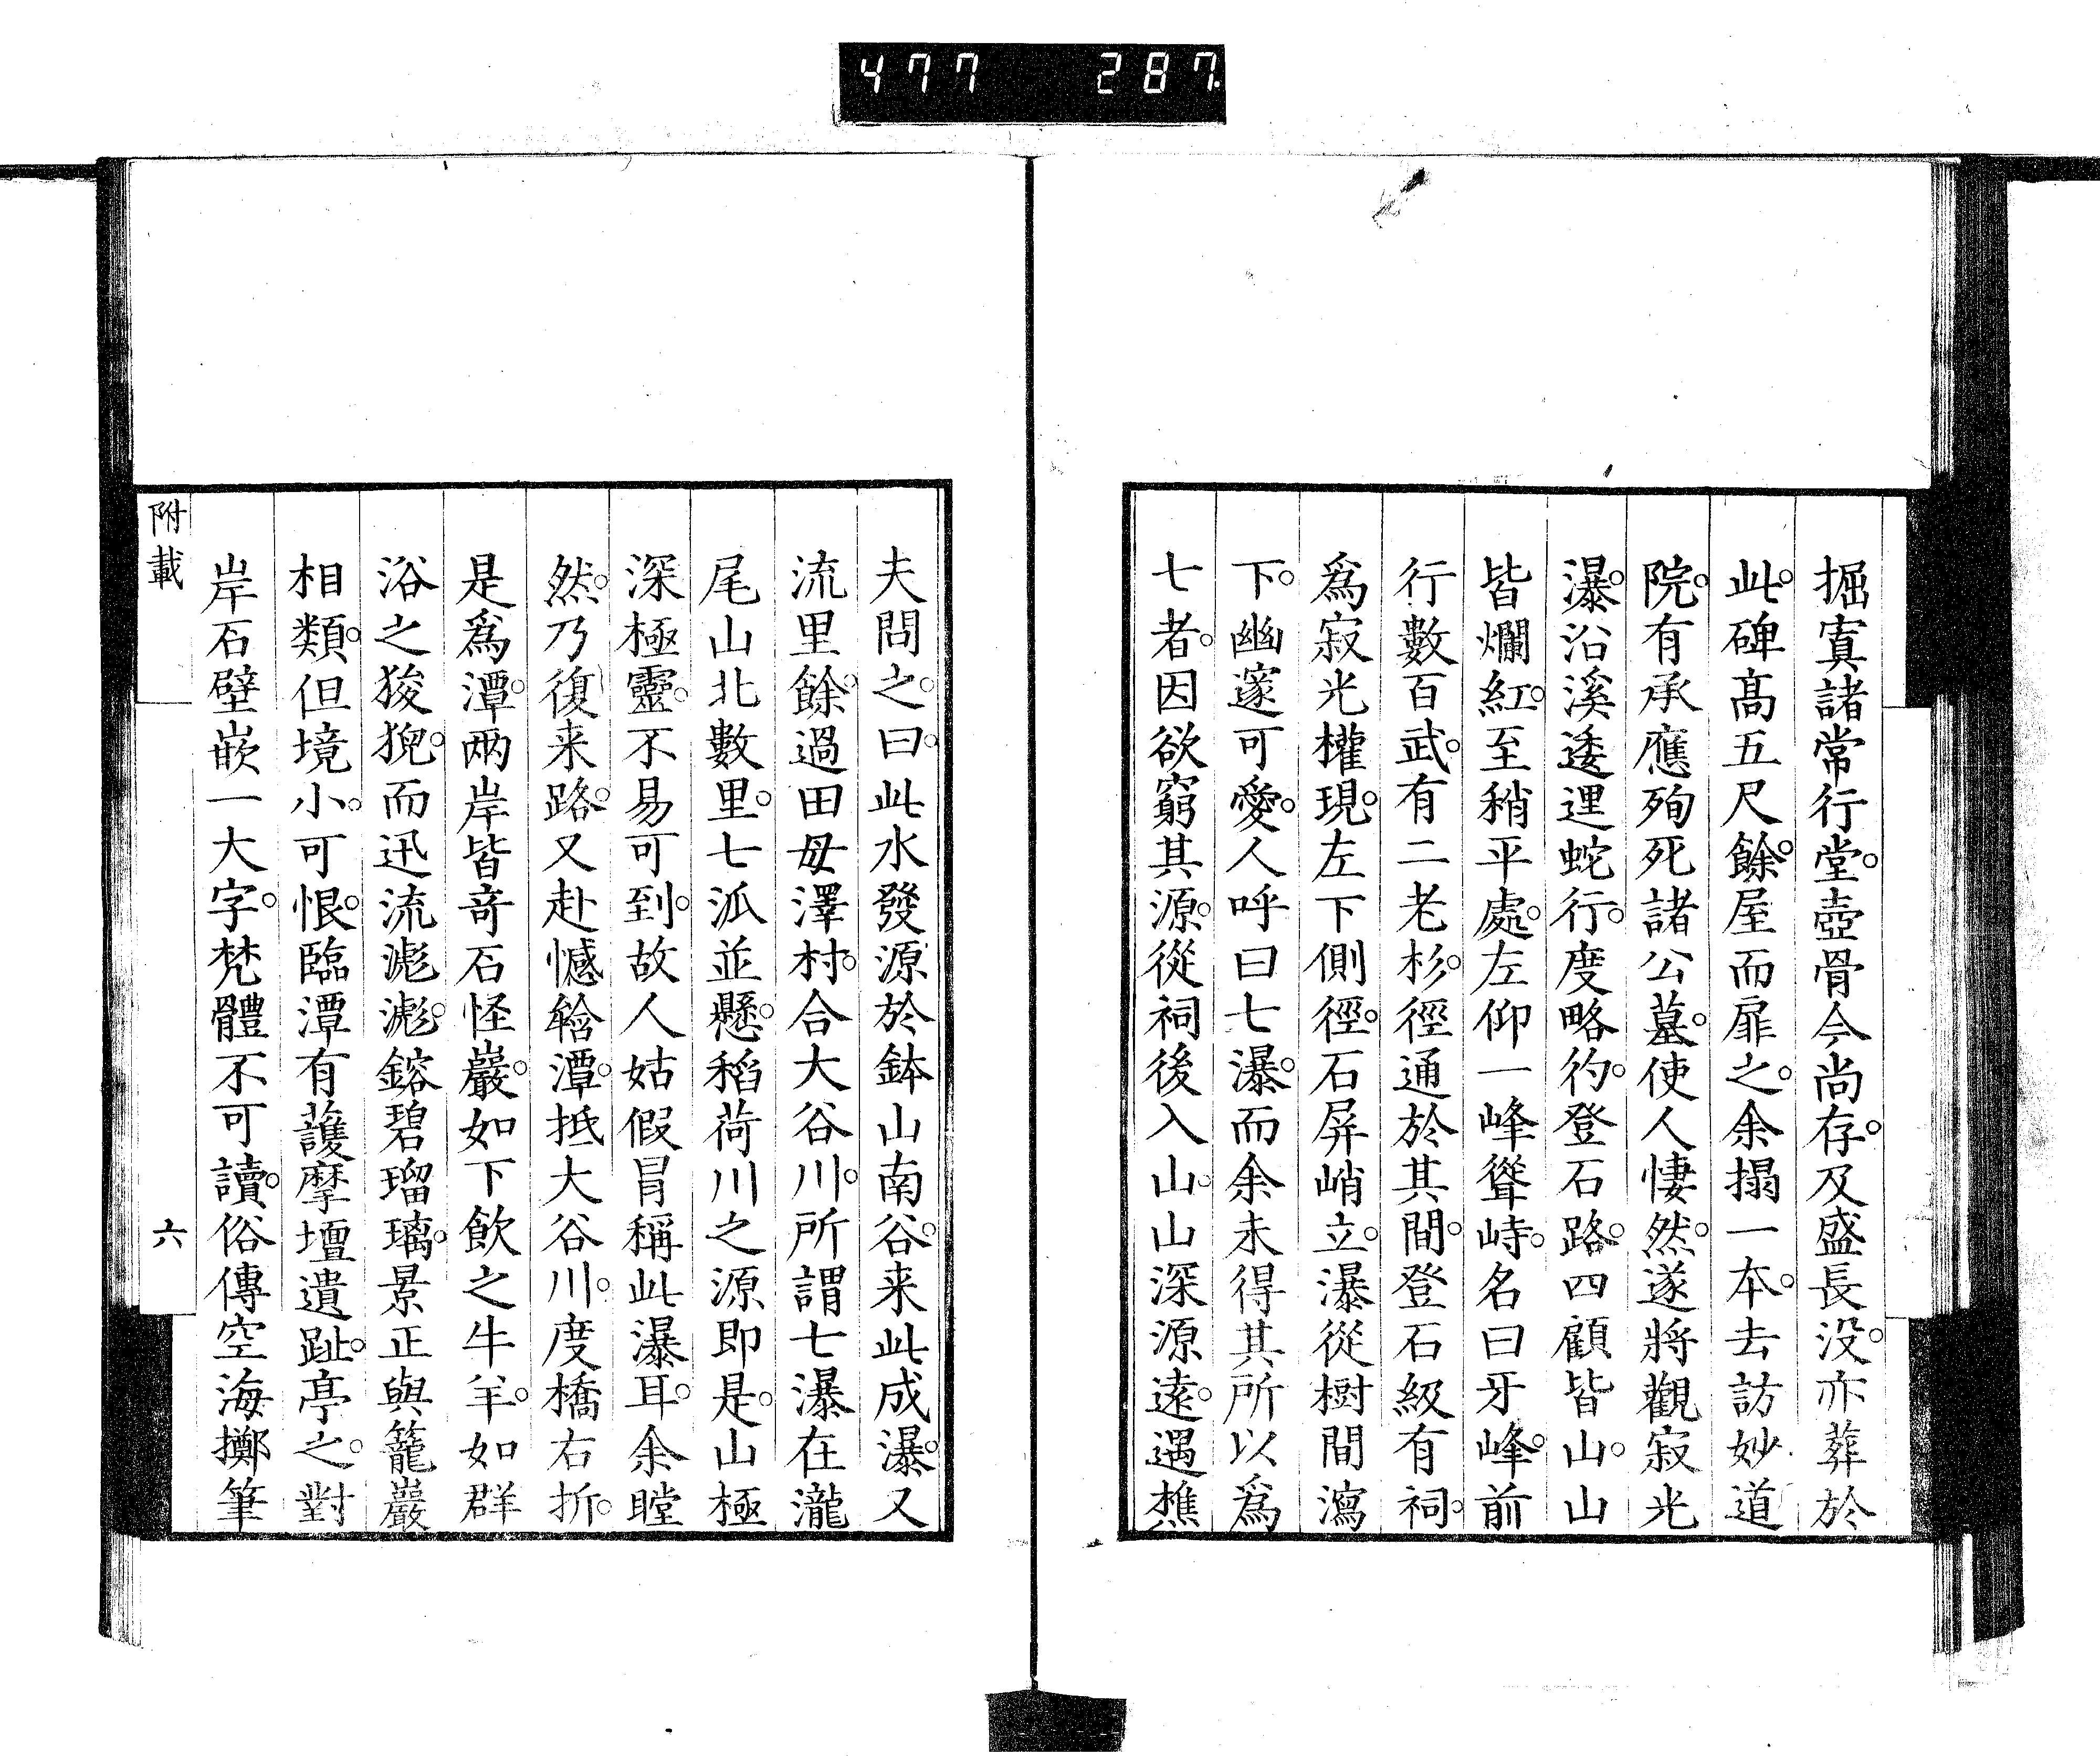 477 287.
掘寘諸常行堂。壺骨今尚存。及盛長没。亦葬於
此。碑髙五尺餘。屋而扉之。余搨一本。去訪妙道
院。有承應殉死諸公墓。使人悽然。遂將觀寂光
瀑。沿溪逶迤蛇行。度略彴。登石路。四顧皆山。山
皆爛紅。至稍平處。左仰一峰聳峙。名曰牙峰。前
行數百武。有二老杉。徑通於其間。登石級有祠。
爲寂光權現。左下側徑。石屏峭立。瀑從樹間瀉
下。幽邃可愛。人呼曰七瀑。而余未得其所以爲
七者。因欲窮其源。從祠後入山。山深源遠。遇樵
夫問之。曰。此水發源於鉢山南谷。来此成瀑。又
流里餘。過田母澤村。合大谷川。所謂七瀑在瀧
尾山北數里。七派並懸。稻荷川之源即是。山極
深極靈。不易可到。故人姑假冐稱此瀑耳。余瞠
然。乃復来路。又赴憾𤚥潭。抵大谷川。度橋右折。
是爲潭。兩岸皆竒石怪巖。如下飲之牛羊。如群
浴之狻猊。而迅流滮滮。鎔碧瑠璃。景正與籠巖
相類。但境小。可恨。臨潭有護摩壇遺趾。亭之。對
岸石壁嵌一大字。梵體不可讀。俗傳空海擲筆
附載
六